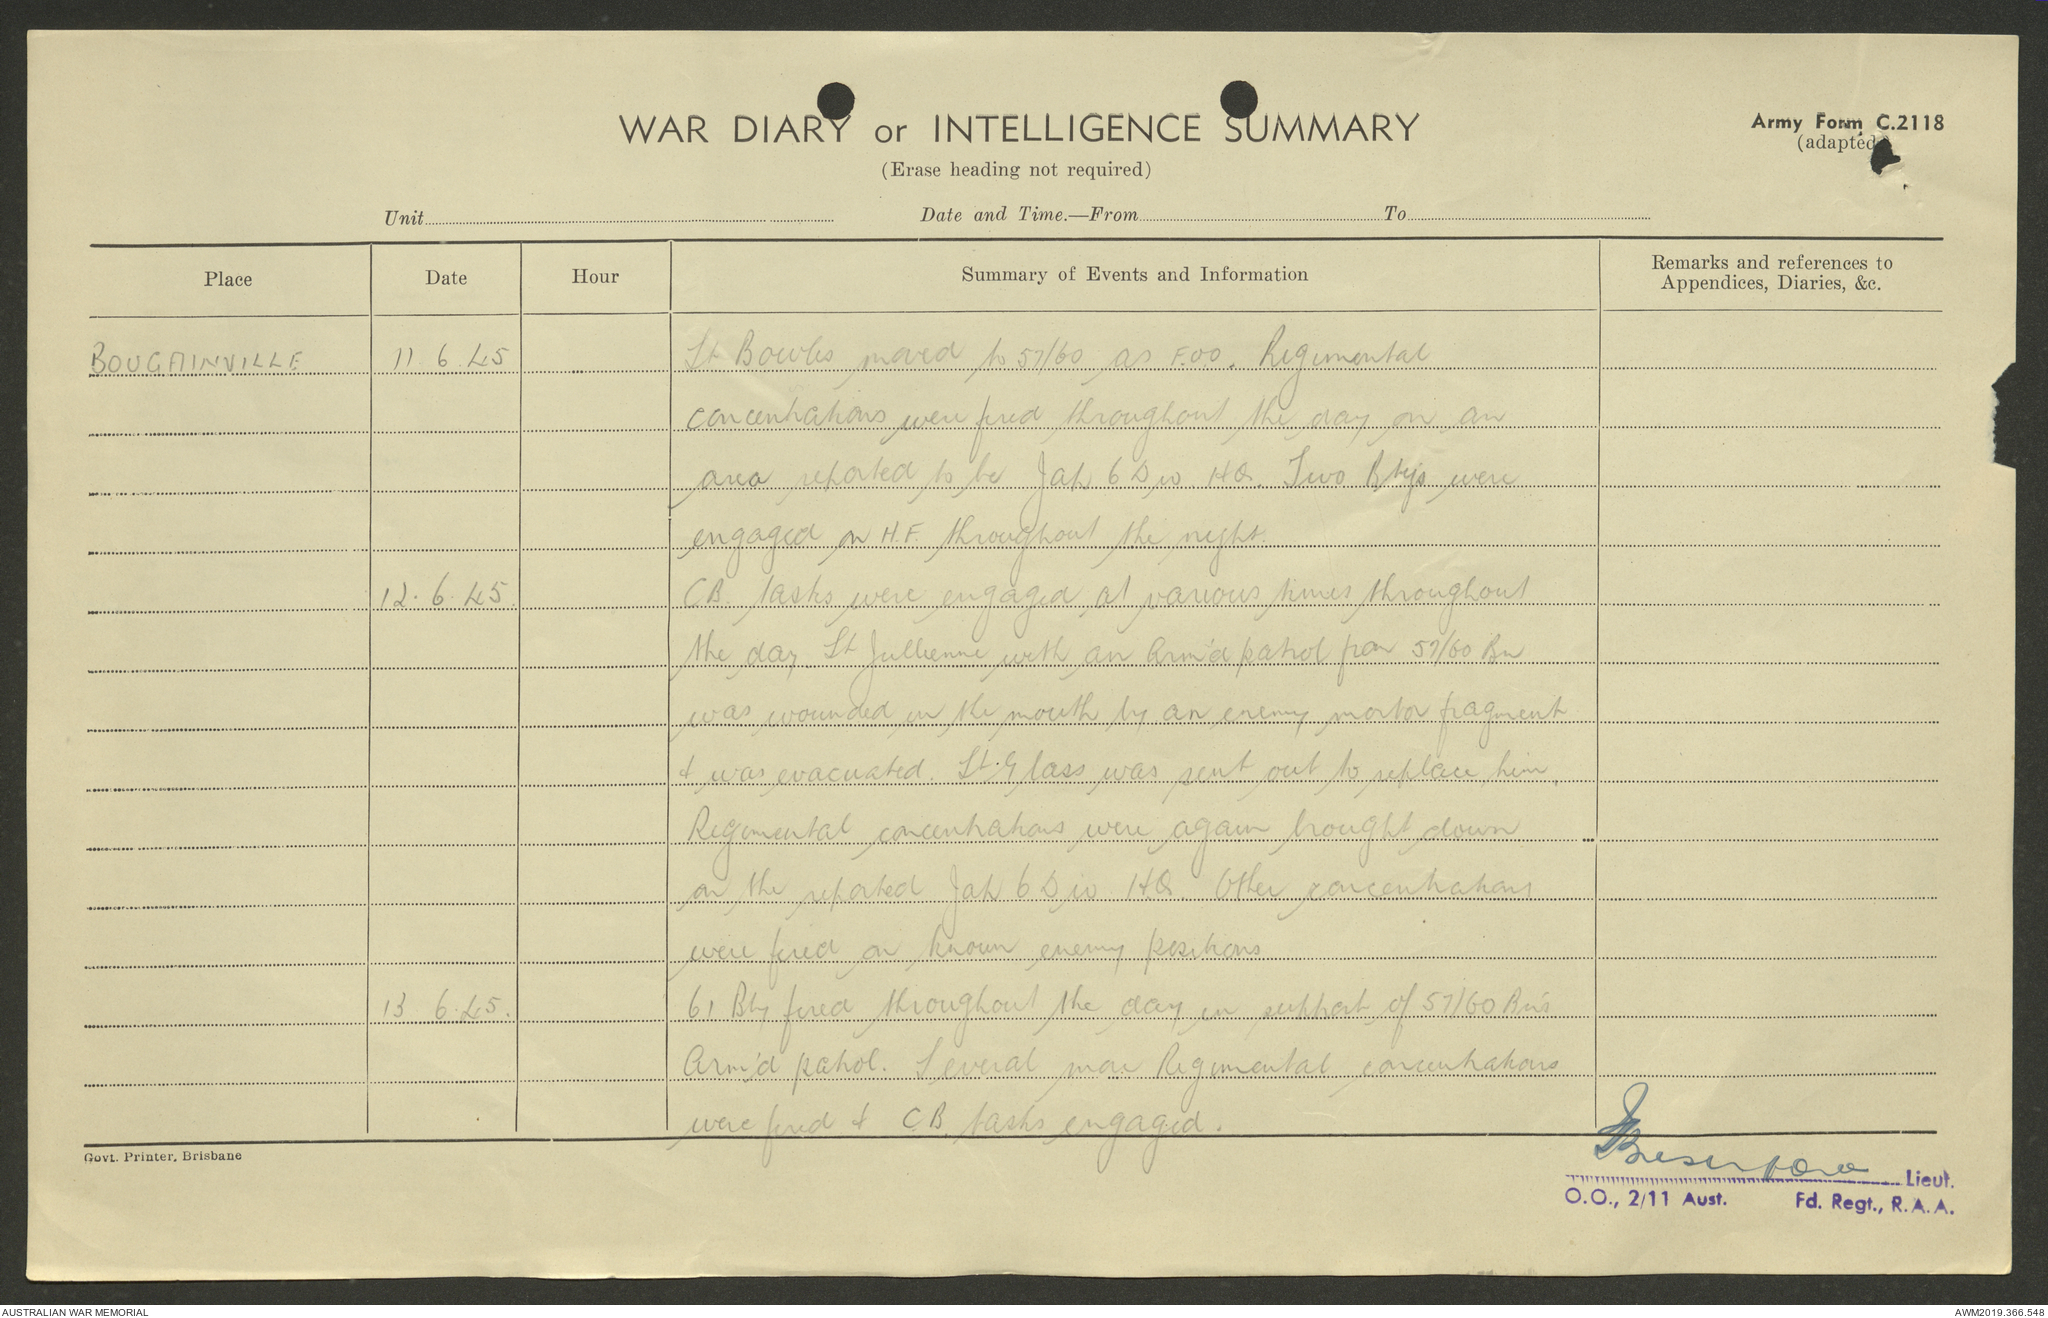 WAR DIARY or INTELLIGENCE SUMMARY
Army Form C.2118
(adapted)
(Erase heading not required)
Unit Date and Time.—From To
Place Date Hour Summary of Events and Information Remarks and references to
Appendices, Diaries, &c.
BOUGAINVILLE 11.6.45 Lt Bowles moved to 57/60 as F.O.O. Regimental
concentrations were fired throughout the day on an
area reported to be Jap 6 Div HQ. Two Btys were
engaged on H.F. throughout the night.
12.6.45. CB. tasks were engaged at various times throughout
the day Lt Jullienne with an Arm'd patrol from 57/60 Bn
was wounded in the mouth by an enemy mortor fragment
& was evacuated. Lt. Glass was sent out to replace him.
Regimental concentrations were again brought down
on the reported Jap 6 Div HQ. Other concentrations
were fired on known enemy positions
13 6.45. 61 Bty fired throughout the day in support of 57/60 Bn's
Arm'd patrol. Several more Regimental concentrations
were fired & C.B. tasks engaged.
Govt. Printer, Brisbane
Lieut.
O.O., 2/11 Aust. Fd. Regt., R.A.A.
AUSTRALIAN WAR MEMORIAL
AWM2019.366.548